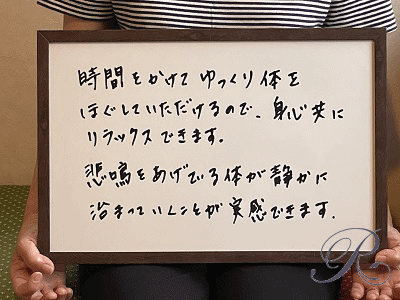 時間をかけてゆっくり体を
ほぐしていただけるので、身心共に
リラックスできます。
悲鳴をあげている体が静かに
治まっていくことが実感できます.
R